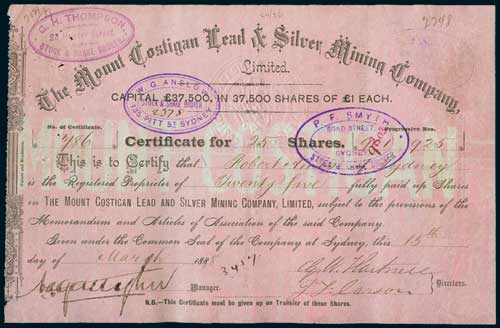 G. H. THOMPSON
STOCK & SHARE BROKER
2748
The Mount Costigan Lead & Silver Mining Company,
Limited.
W. G. ANSLOW
STOCK & SHARE BROKER
135 PITT ST SYDNEY
CAPITAL £37,500, IN 37,500 SHARES OF £1 EACH.
P. F. SMYTH
BOND STREET,
SYDNEY
STOCK & SHARE BROKER
No. of Certificate.
Progressive Nos.
486
Certificate for 25 Shares.
925
This is to Certify that Robert Sydney
the Registered Proprietor of Twenty five fully paid up Shares
IN THE MOUNT COSTIGAN LEAD AND SILVER MINING COMPANY, LIMITED, subject to the provisions of the
Memorandum and Articles of Association of the said Company.
Given under the Common Seal of the Company at Sydney, this 15th
day of March 1888
3457
Manager.
Directors.
N.B.—This Certificate must be given up on Transfer of these Shares.